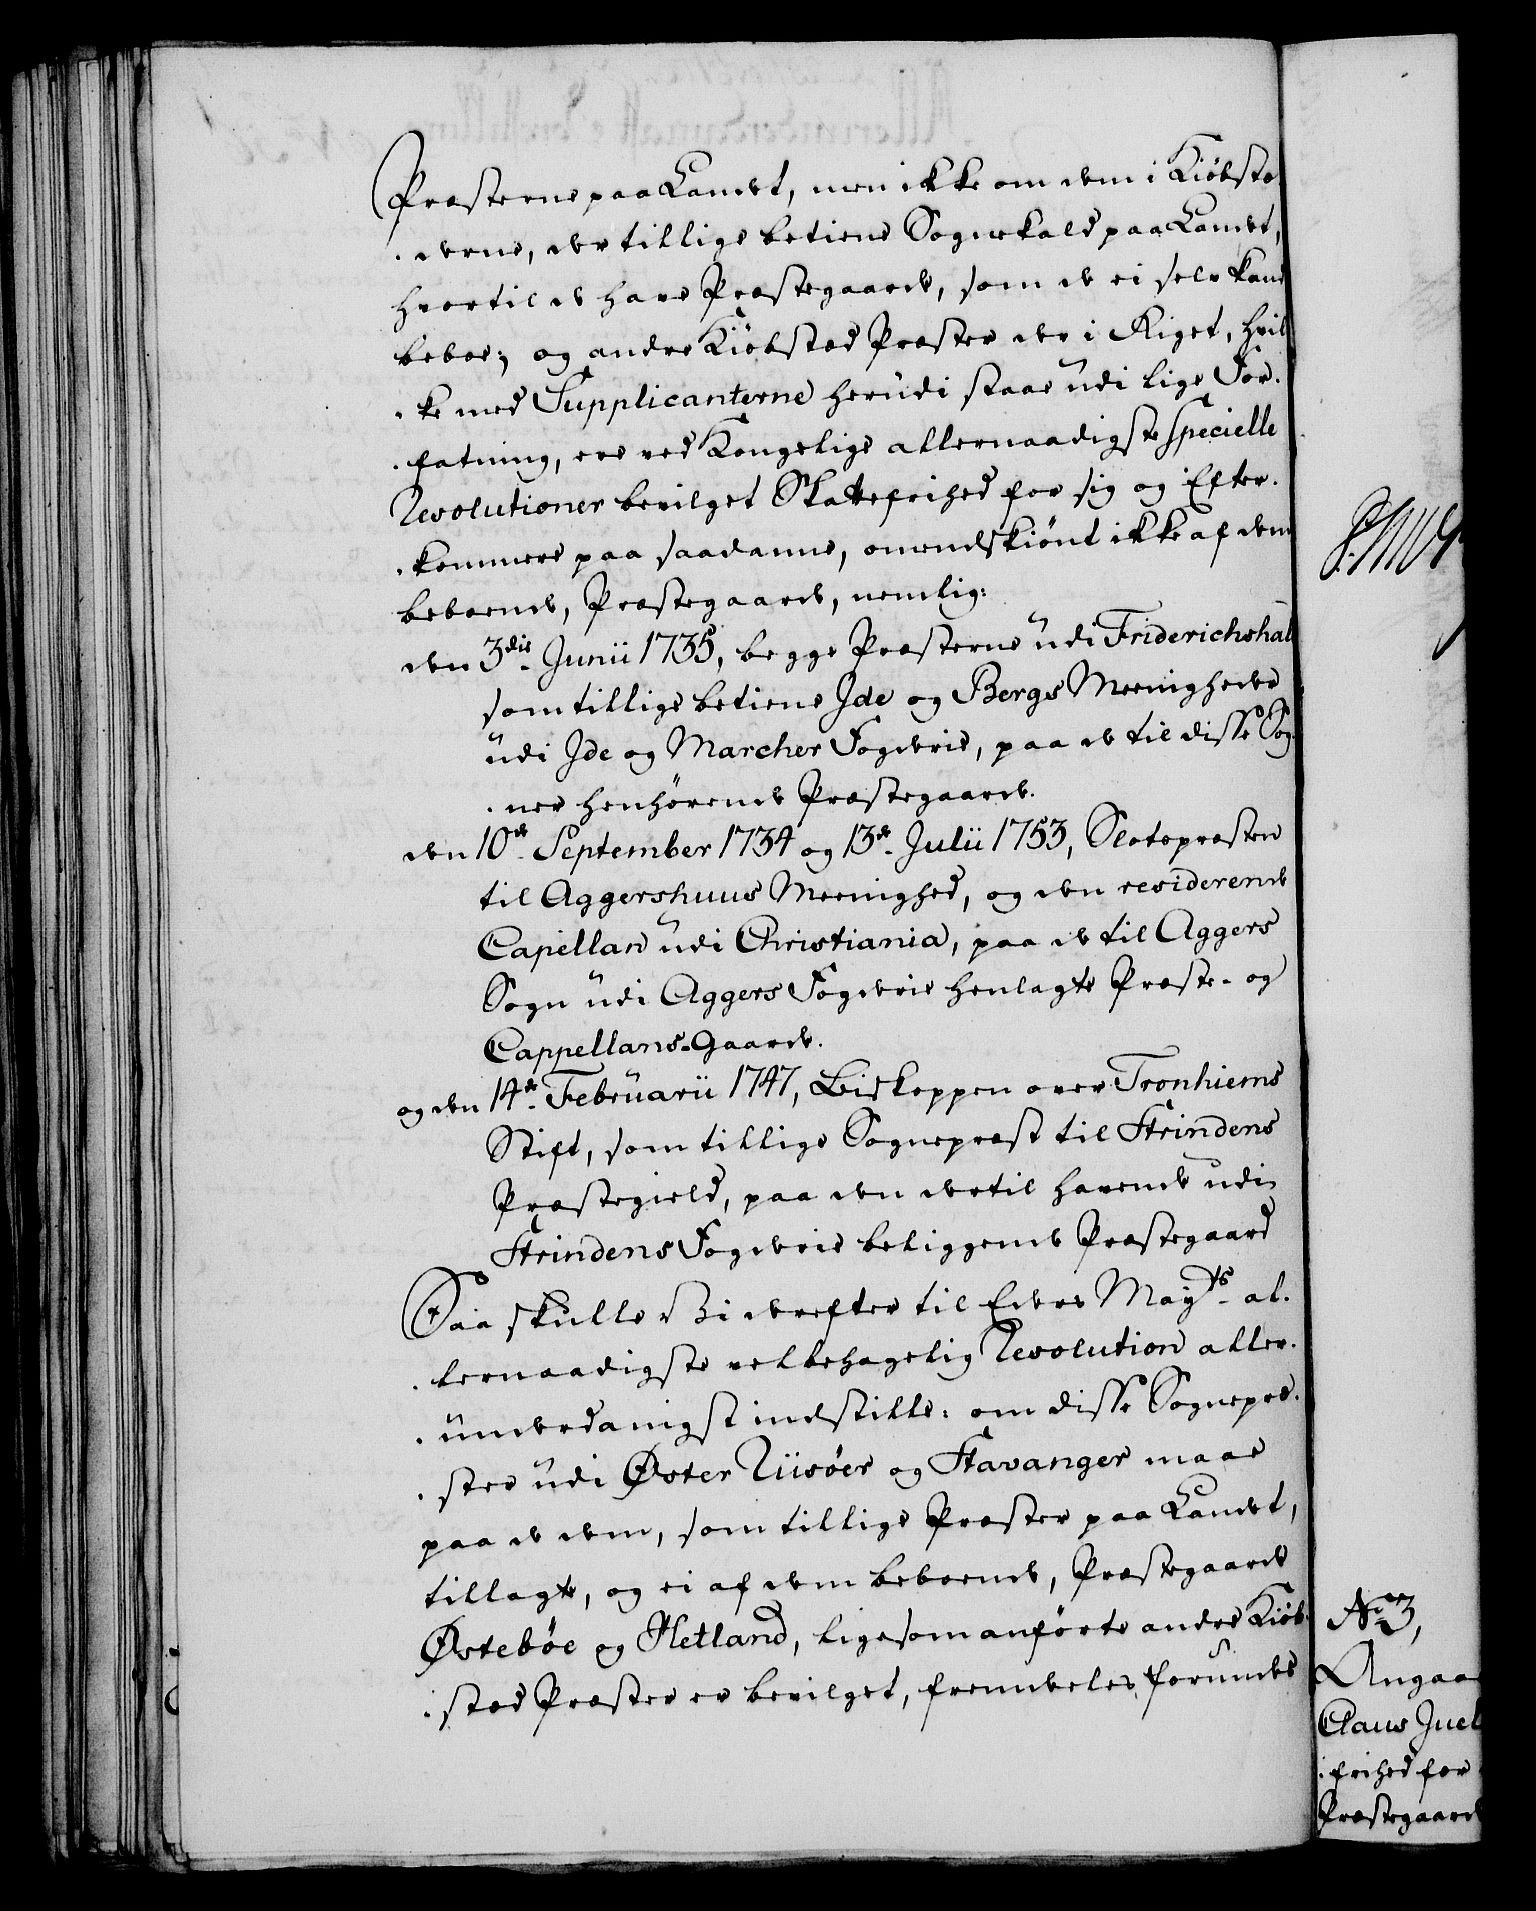 Præsterne paa Landet, men ikke om dem i Kiöbstæ-
-derne, der tillige betiene Sognekald paa Landet,
hvortil de have Præstegaarde, som de ei selv kand
beboe; og andre Kiöbstæd Præster der i Riget, hvil-
-ke med Supplicanterne herudi staae udi lige For-
-fatning, ere ved Kongelige allernaadigste specielle
Resolutioner bevilget Skattefrihed for sig og Efter-
-kommere paa saadanne, omendskiönt ikke af dem
beboende, Præstegaarde, nemlig:
den 3die Junii 1735, begge Præsterne udi Friderichshal
som tillige betiene Ide og Bergs Meenigheder
udi Ide og Marcher Fogderie, paa de til disse Sog-
-ner henhörende Præstegaarde.
den 10de September 1734 og 13de Julii 1753, Slotspræsten
til Aggershuus Meenighed, og den residerende
Capellan udi Christiania, paa de til Aggers
Sogn udi Aggers Fogderie henlagte Præste- og
Cappellans-Gaarde.
og den 14de Februarii 1747, Biskoppen over Tronhiems
Stift, som tillige Sognepræst til Strindens
Præstegield, paa den dertil havende udi
Strindens Fogderie beliggende Præstegaard
Saa skulle Vi derefter til Eders Mayts al-
-lernaadigste velbehagelig Resolution aller-
-underdanigst indstille: om disse Sognepræ-
-ster udi Øster Riisöer og Stavanger maae
paa de dem, som tillige Præster paa Landet,
tillagte, og ei af dem beboende, Præstegaarde
Østeböe og Hetland, ligesom anförte andre Kiöb-
-stæd Præster er bevilget, fremdeles forundes
No 3,
Angaa
Claus Juel
-frihed for
Præstegaard